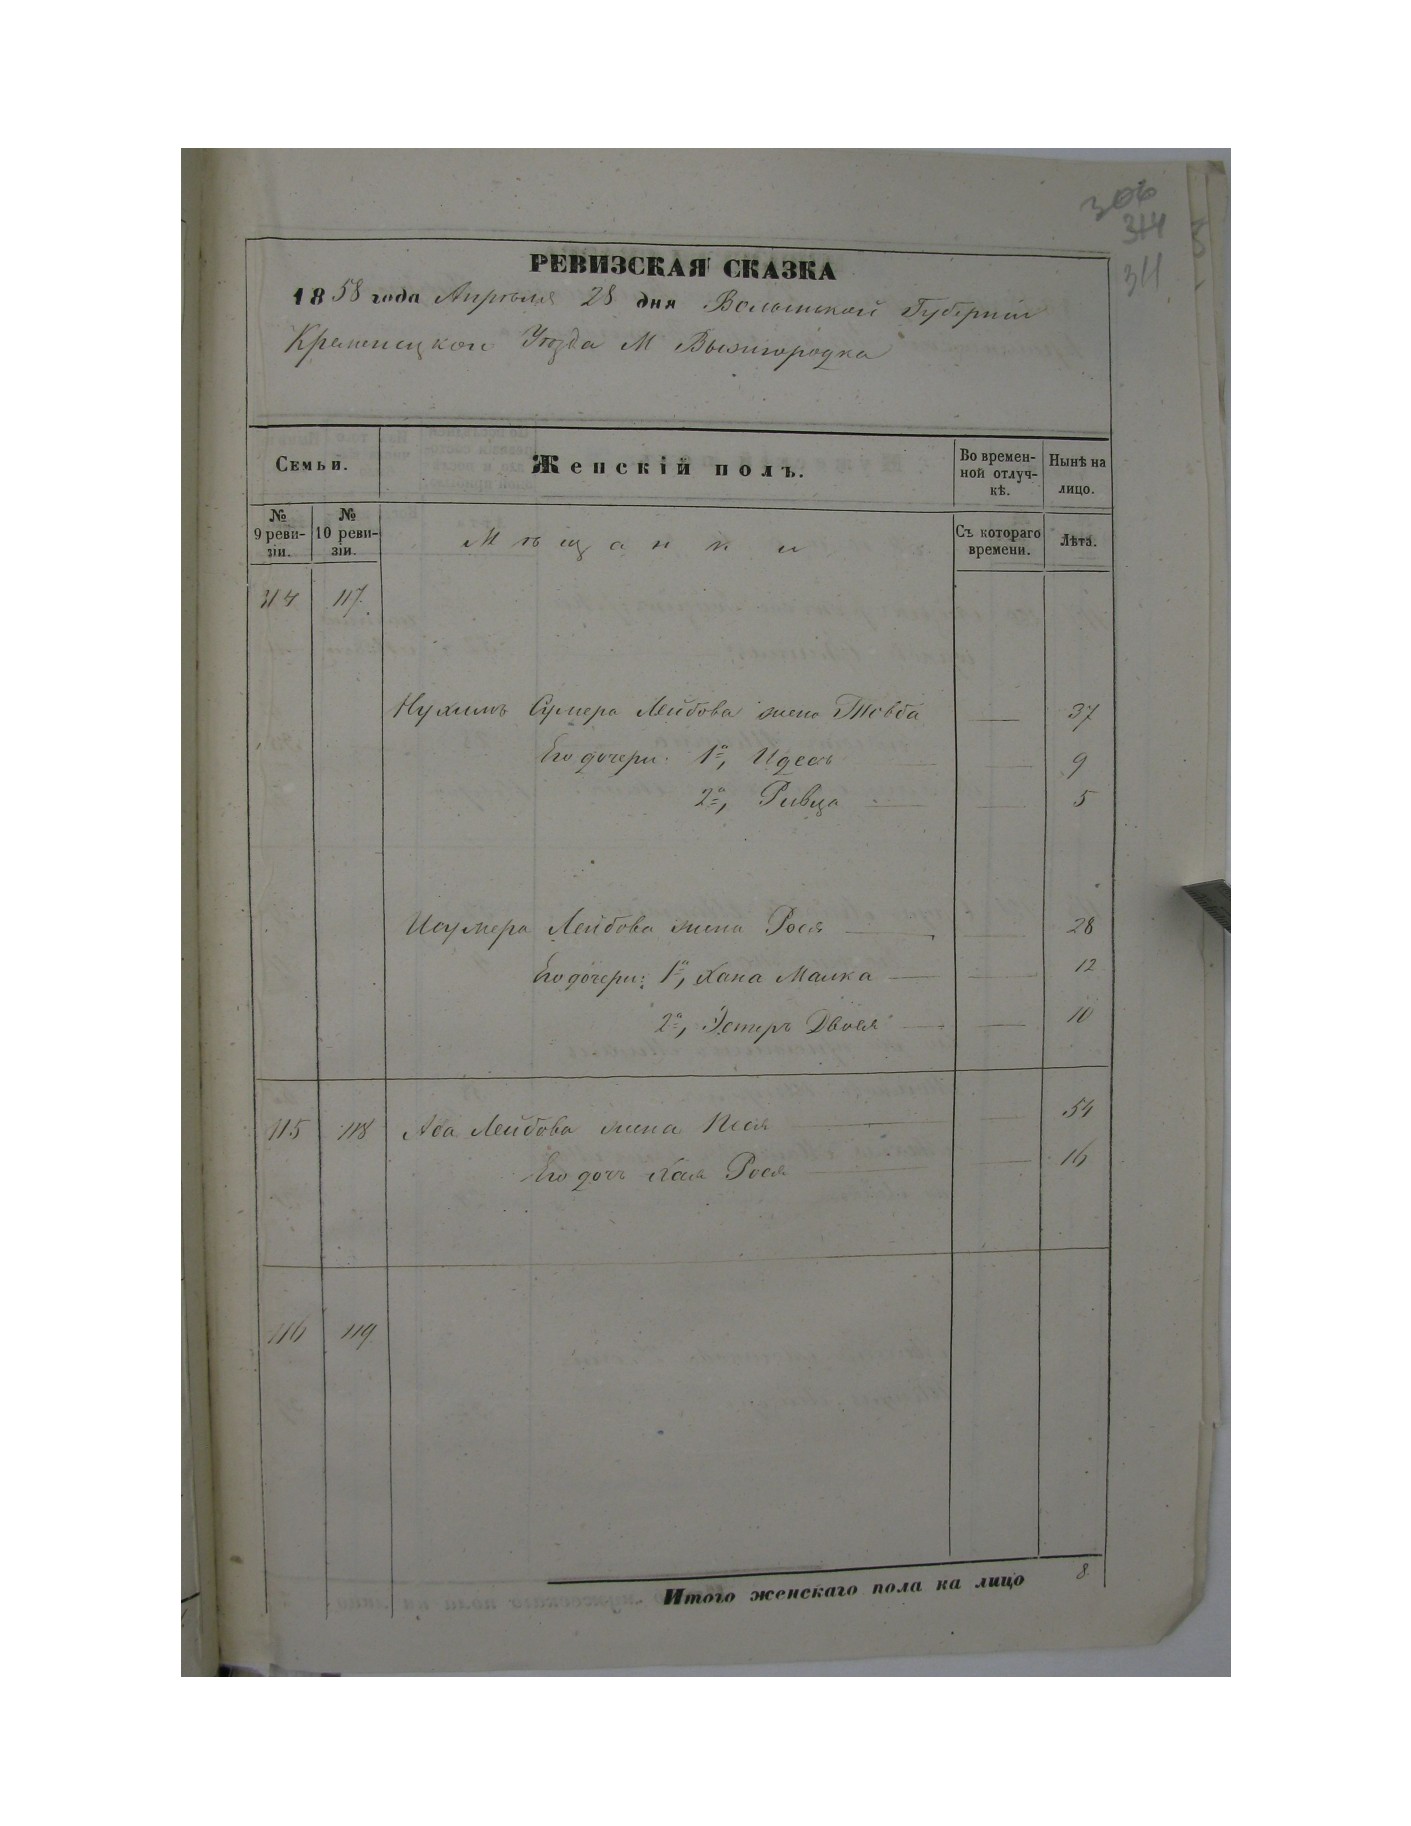 306
314
311
РЕВИЗСКАЯ СКАЗКА
1858 года Апреля 28 дня Волынской Губерніи
Кременецкого Уезда М Вышгородка
Семьи.
Женскій полъ.
Во времен-
ной отлуч-
кѣ.
Нынѣ на
лицо.
№
9 реви-
зіи.
№
10 реви-
зіи.
Мѣщанки
Съ котораго
времени.
Лѣта.
314 117.
Сумера Лейбова жена Товба — 37
Его дочери: 1я, Идесъ — 9
2я, Ривца — 5
Лейбова жена Рося — 28
Его дочери: 1я, Хана Малка — 12
2я, Эстеръ Двося — 10
115 118 Аба Лейбова жена Песя — 54
Его дочь Хая Рося — 16
116 119
Итого женскаго пола на лицо 8